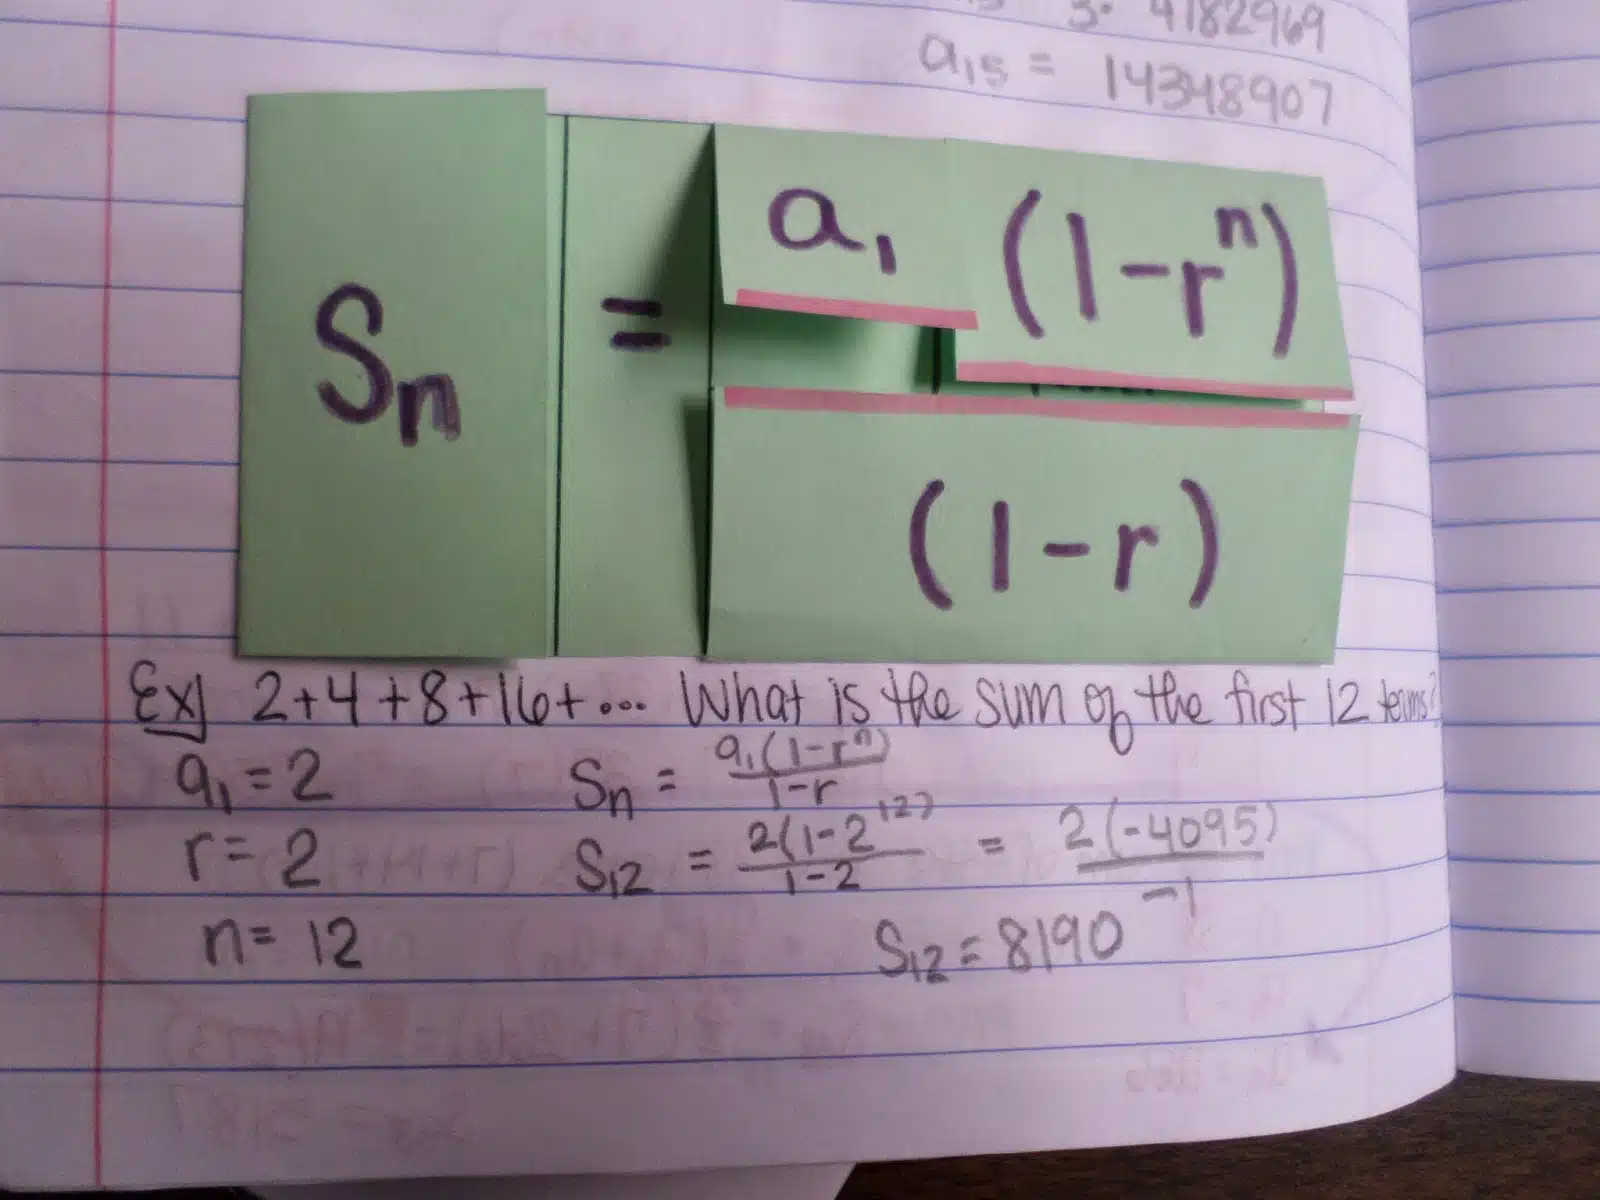 3 · 4782969
a₁₅ = 14348907
Sₙ = a₁ (1-rⁿ)
(1-r)
Ex) 2+4+8+16+... What is the sum of the first 12 terms?
a₁ = 2 Sₙ = a₁(1-rⁿ) / 1-r
r = 2 S₁₂ = 2(1-2¹²) / 1-2 = 2(-4095) / -1
n = 12 S₁₂ = 8190